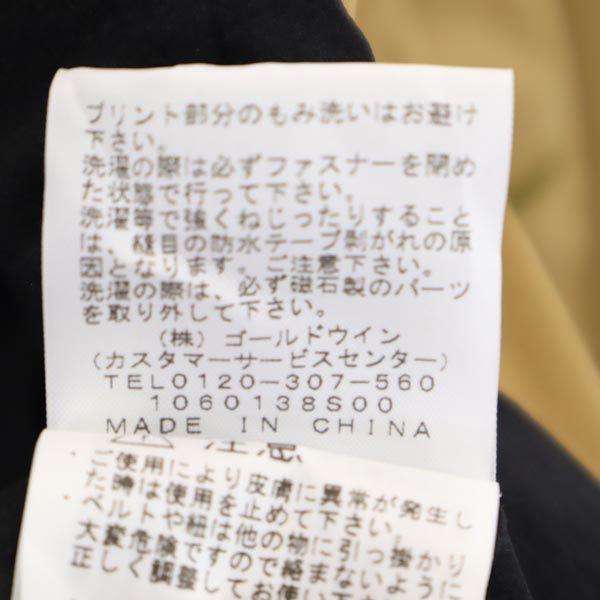 プリント部分のもみ洗いはお避け
下さい。
洗濯の際は必ずファスナーを閉め
た状態で行って下さい。
洗濯等で強くねじったりすること
は、縫目の防水テープ剥がれの原
因となります。ご注意下さい。
洗濯の際は、必ず磁石製のパーツ
を取り外して下さい。
(株)ゴールドウイン
(カスタマーサービスセンター)
TEL0120-307-560
1060138S00
MADE IN CHINA
⚠注意
・ご使用により皮膚に異常が発生し
た時は使用を止めて下さい。
・ベルトや紐は他の物に引っ掛かり
大変危険ですので絡まないように
正しく調整してお使い下